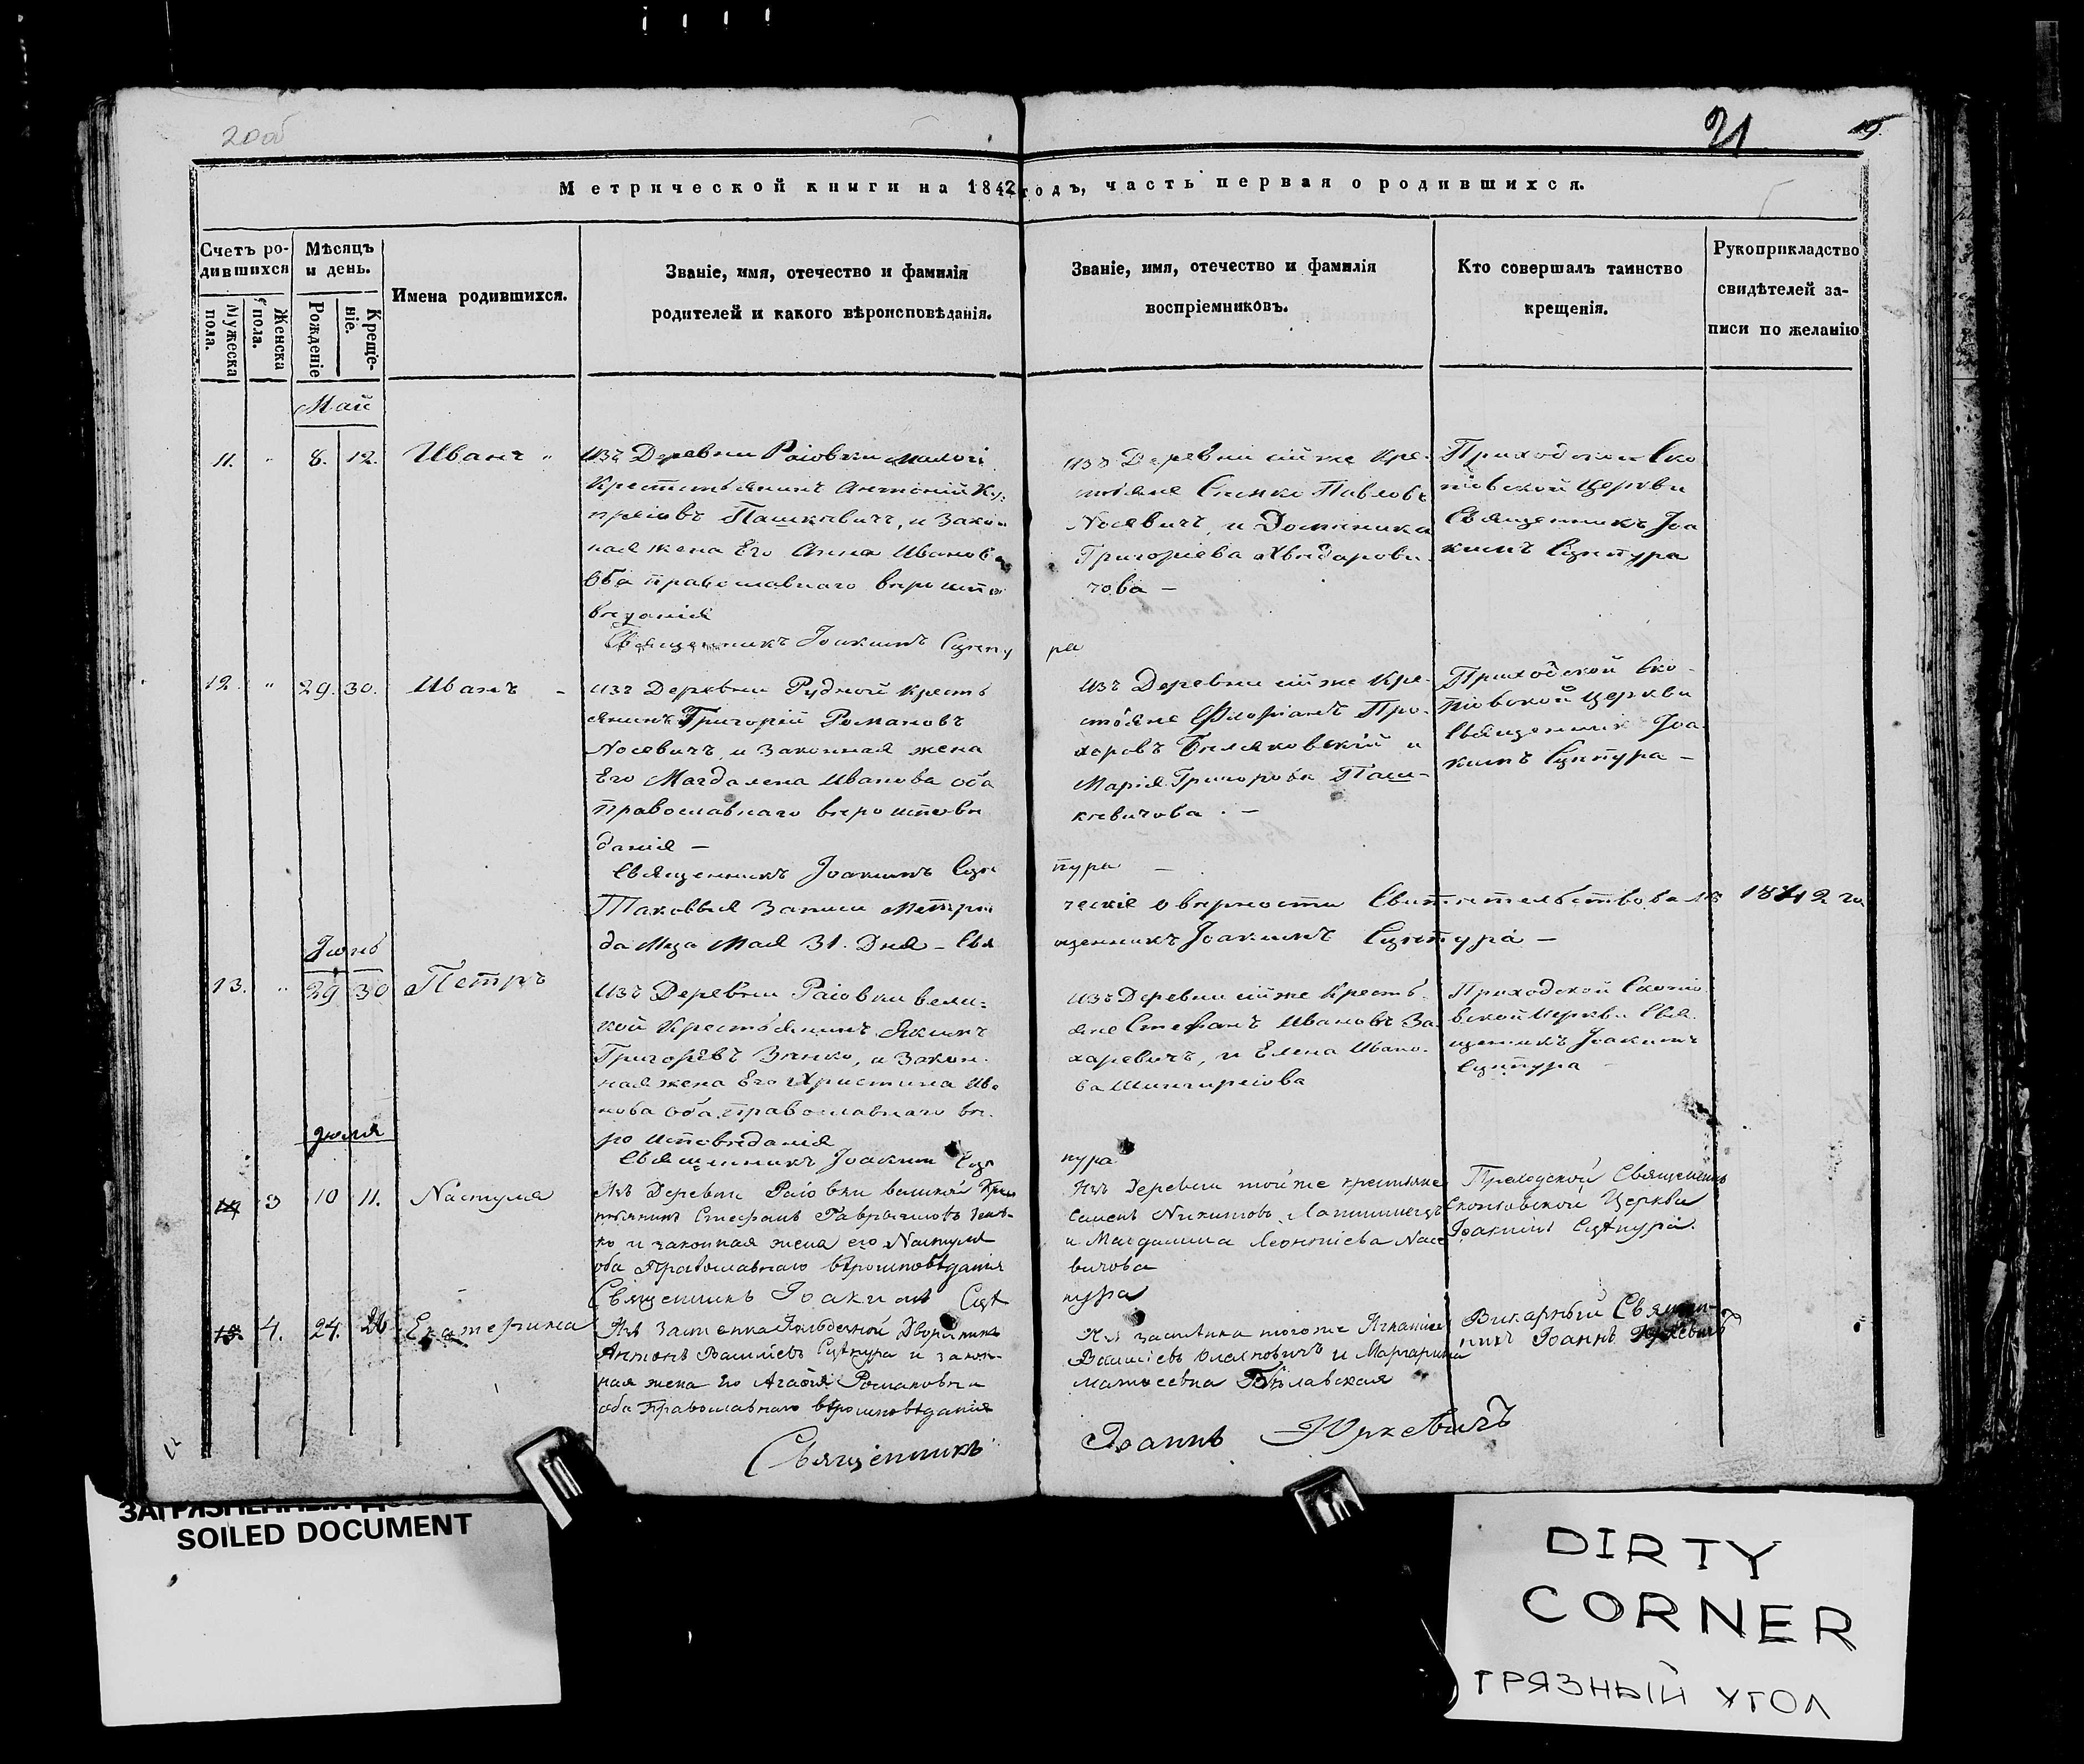 20об
21
19.
Метрической книги на 1842 годъ, часть первая о родившихся.
Счетъ ро-
дившихся
Мужеска
пола.
Женска
пола.
Мѣсяцъ
и день.
Рожденіе
Креще-
ніе.
Имена родившихся.
Званіе, имя, отечество и фамилія
родителей и какого вѣроисповѣданія.
Званіе, имя, отечество и фамилія
воспріемниковъ.
Кто совершалъ таинство
крещенія.
Рукоприкладство
свидѣтелей за-
писи по желанію
Май
11. " 8. 12. Иванъ "
Изъ Деревни Раіовки малой
Крестьянинъ Антоній Ку-
пріовъ Пашкевичъ, и Закон
ная жена Его Анна Иванова
Оба православнаго вѣроиспо
вѣданія
Священникъ Іоакимъ Сцепу
ра
Изъ Деревни сійже Кре-
стьяне Павловъ
Носевичъ, и Доминика
Григоріева
това —
Приходской Ско
півской Церкви
Священникъ Іоа
кимъ Сцепура
12. " 29. 30. Иванъ –
Изъ Деревни Рудной Кресть
янинъ Григорій Романовъ
Носевичъ, и Законная жена
Его Магдалена Иванова оба
Православнаго вѣроисповѣ
данія —
Священникъ Іоакимъ Сце
пура —
Изъ Деревни сійже Кре-
стьяне Флоріанъ Про-
хоровъ Биляковскій и
Марія Григорова Паш-
кевичова . —
Приходской Ско-
півской Церкви
Священникъ Іоа-
кимъ Сцепура —
Таковыя Записи Метри
ческіе о вѣрности Свитетельствовалъ 1842 го
да Мца Мая 31. Дня – Свя
щенникъ Іоакимъ Сцепура —
Іюнь
13. " 29 30 Петръ
Изъ Деревни Раіовки вели-
кой Крестьянинъ Якимъ
Григорѣвъ Зенько, и Закон-
ная жена Его Христина Ива
нова оба православнаго вѣ-
ро исповѣданія
Священникъ Іоаким Сце
пура
Изъ Деревни сійже Кресть-
яне Стефанъ Ивановъ За-
харевичъ, и Елена Ивано-
ва
Приходской Скопо
вской Церкви Свя-
щенникъ Іоакимъ
Сцепура –
Іюля
14 3 10 11. Настуля
Изъ Деревни Раіовки великой Крес
тьянинъ Стефанъ Гаврыловъ Зень-
ко и законная жена его Настуля
оба Православнаго вѣроисповѣданія
Священникъ Іоакимъ Сце
пура
Изъ Деревни тойже крестьяне
Семенъ Никитовъ
и Магдалина Леонтіева Носе
вичова
Приходской Священникъ
Скоповской Церкви
Іоакимъ Сцепура.
15. 4. 24. 26 Екатерина
Изъ застенка Дворянинъ
Антонъ Васильевъ Сцепура и закон-
ная жена Его Агафія Романовна
оба Православнаго вѣроисповѣданія
Изъ застенка тогоже Игнатій
Васильевъ и Маргарита
Матвеевна Бѣлавская
Викарный Священ-
никъ Іоаннъ Юркевичъ
Священникъ Іоаннъ Юркевичъ
ЗАГРЯЗНЕННЫЙ
SOILED DOCUMENT
DIRTY
CORNER
ГРЯЗНЫЙ УГОЛ